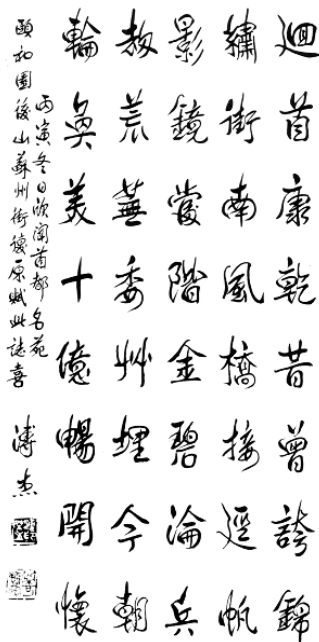 迴首康乾昔曾誇錦
繡街南風橋接逕帆
影鏡當階金碧淪兵
刼荒蕪委艸埋今朝
輪奐美十億暢開懷
丙寅冬日欣聞首都名苑
頤和園後山蘇州街復原賦此誌喜 溥杰